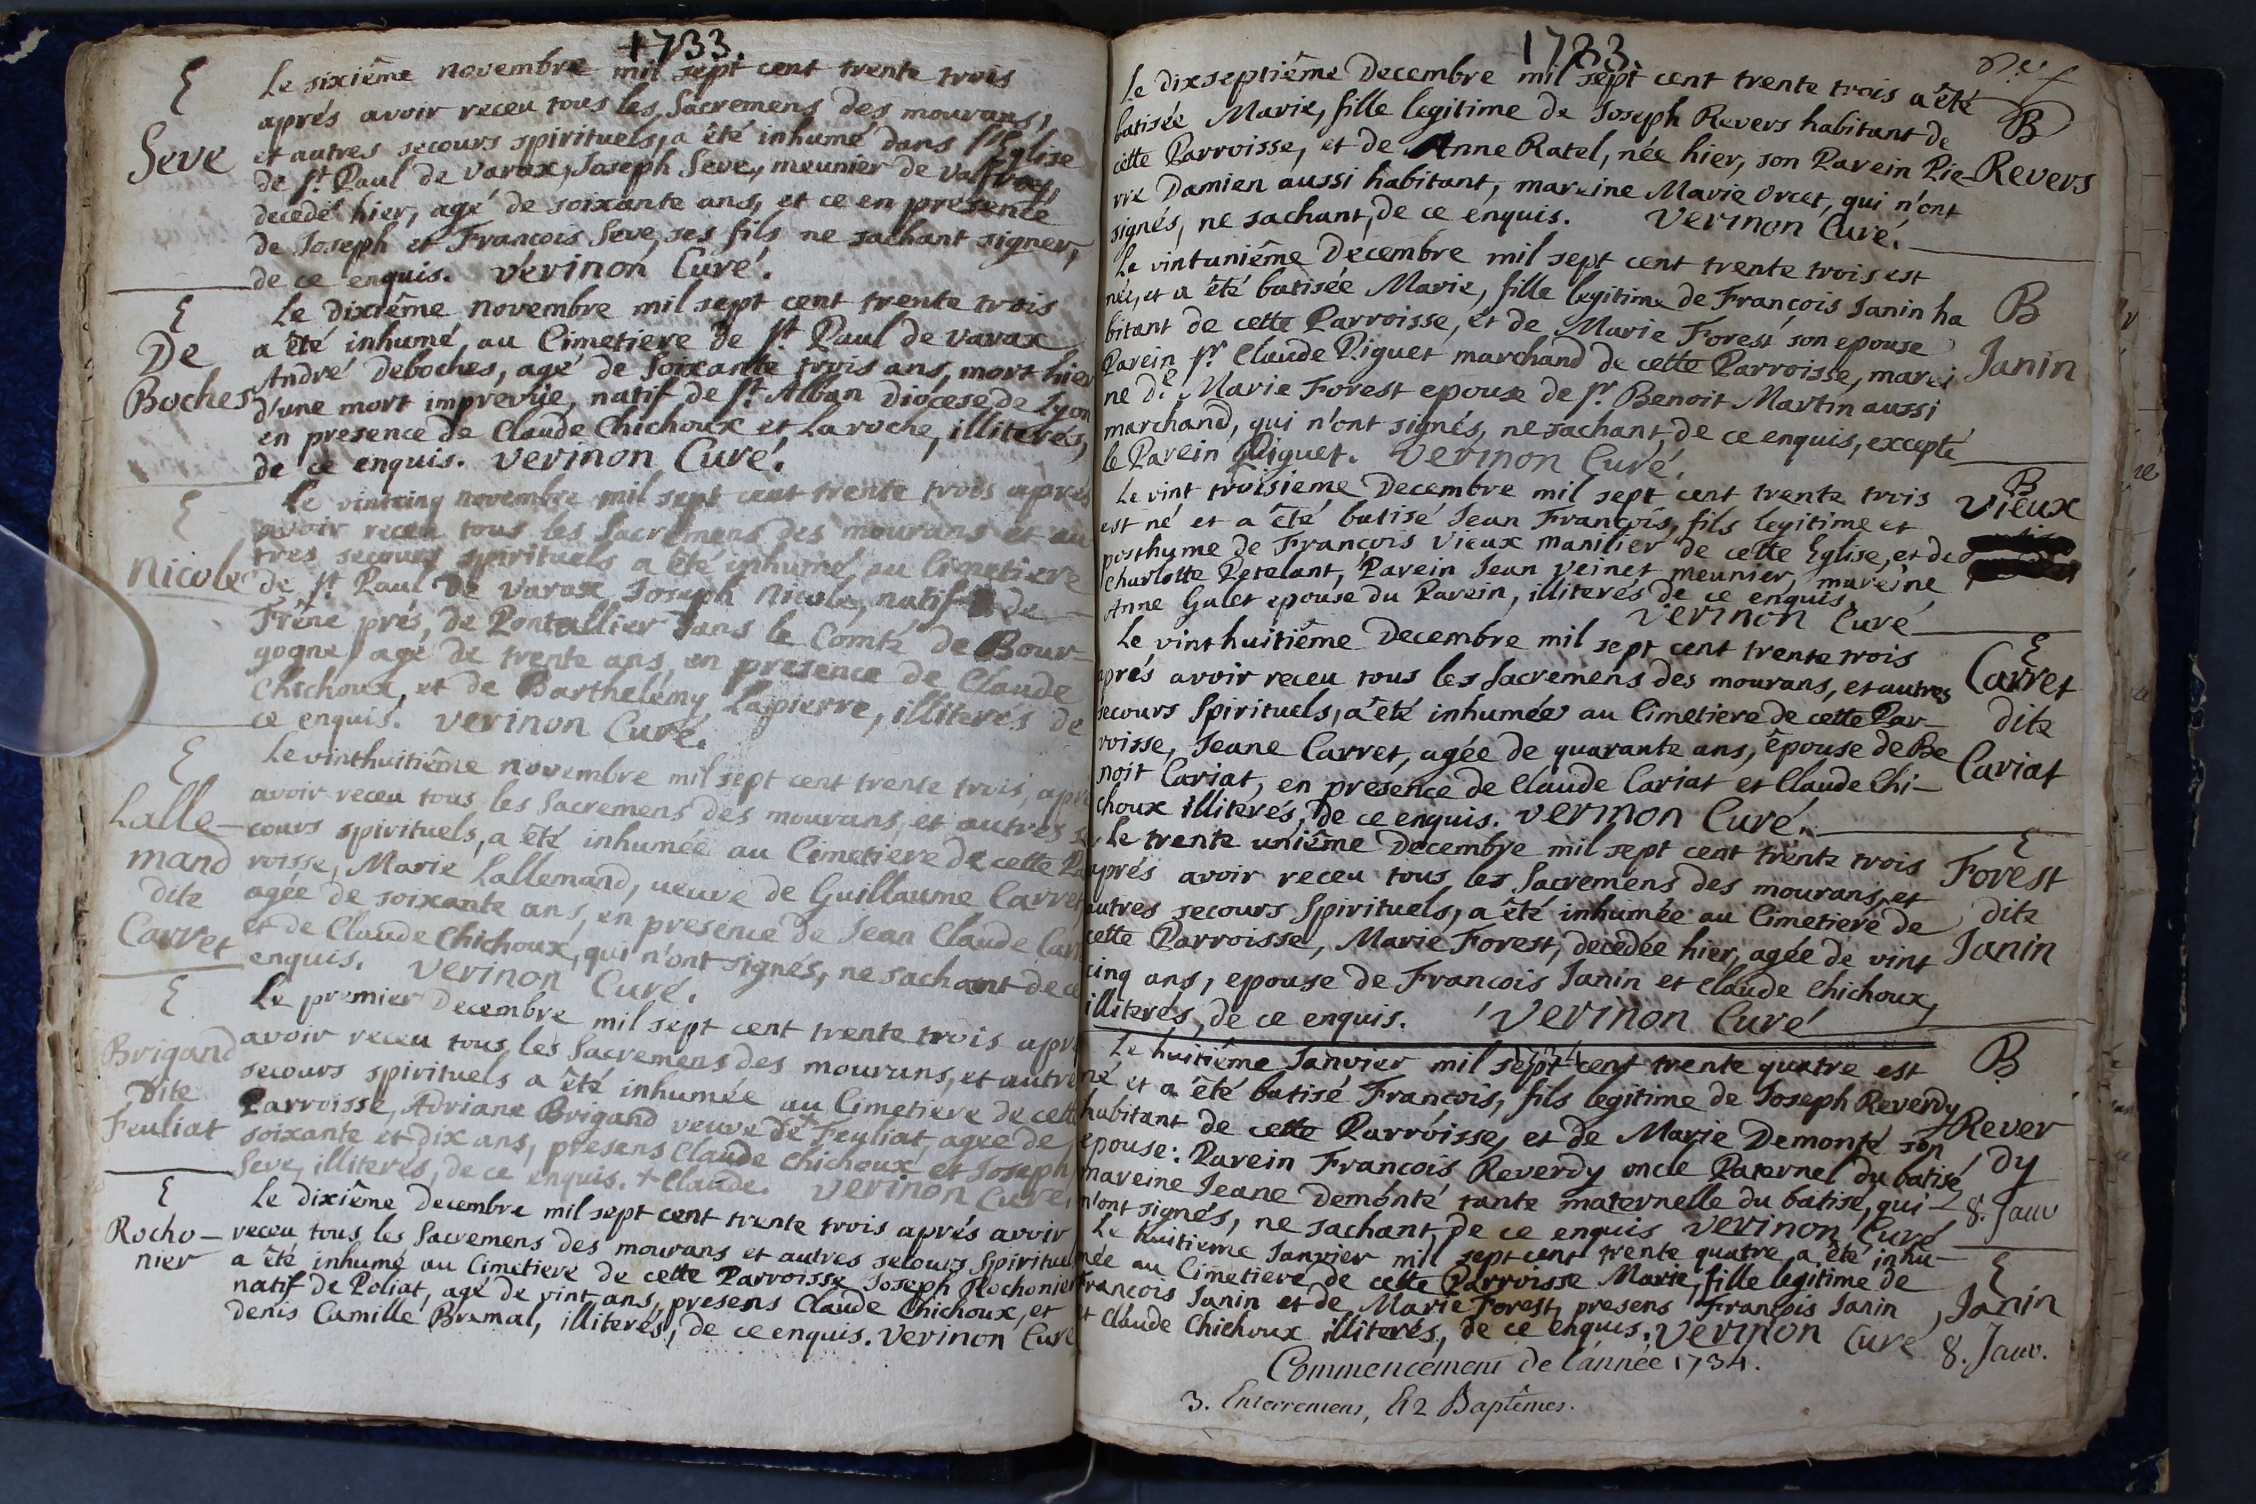 1733.
E
Seve
Le sixiême novembre mil sept cent trente trois
aprés avoir receu tous les Sacremens des mourans,
et autres secours spirituels, a êté inhumé dans l'Eglise
de st. Paul de varax, Joseph Seve, meunier de
decedé hier, agé de soixante ans, et ce en presence
de Joseph et Francois Seve, ses fils ne sachant signer,
de ce enquis. Verinon Curé.
E
De
Boches
Le dixiême novembre mil sept cent trente trois
a êté inhumé, au Cimetiere de st. Paul de varax
André Deboches, agé de soixante trois ans, mort hier
d'une mort imprevüe, natif de st. Alban Diocese de Lyon
en presence de Claude Chichoux et Laroche, illiterés,
de ce enquis. Verinon Curé.
E
Nicole
Le vintcinq novembre mil sept cent trente trois aprés
avoir receu tous les Sacremens des mourans et au
tres secours spirituels a êté inhumé au Cimetiere
de st. Paul de varax Joseph Nicole, natif de
Frêne prés, de Pontallier dans le Comté de Bour-
gogne, agé de trente ans, en presence de Claude
Chichoux, et de Barthelémy Lapierre, illiterés de
ce enquis. Verinon Curé.
E
Lalle-
mand
dite
Carret
Le vinthuitiême novembre mil sept cent trente trois, apré
avoir receu tous les Sacremens des mourans, et autres se
cours spirituels, a êté inhumée au Cimetiere de cette Pa
roisse, Marie Lallemand, veuve de Guillaume Carret
agée de soixante ans, en presence de Jean Claude Carr
et de Claude Chichoux, qui n'ont signés, ne sachant de ce
enquis. Verinon Curé.
E
Brigand
dite
Feuliat
Le premier Decembre mil sept cent trente trois apré
avoir receu tous les Sacremens des mourans, et autre
secours spirituels a êté inhumée au Cimetiere de cette
Parroisse, Adriane Brigand veuve de Feyliat, agée de
soixante et dix ans, presens Claude Chichoux et Joseph
Seve, illiterés, de ce enquis. + Claude. Verinon Curé,
E
Rocho-
nier
Le dixiême Decembre mil sept cent trente trois aprés avoir
receu tous les Sacremens des mourans et autres secours Spirituels
a êté inhumé au Cimetiere de cette Parroisse Joseph Rochonier
natif de Poliat, agé de vint ans, presens Claude Chichoux, et
denis Camille Bramal, illiterés, de ce enquis. Verinon Curé
1733.
B
Revers
Le dixseptiême Decembre mil sept cent trente trois a êté
batisée Marie, fille legitime de Joseph Revers habitant de
cette Parroisse, et de Anne Ratel, née hier, son Parein Pie-
rre Damien aussi habitant, mareine Marie Orcet, qui n'ont
signés, ne sachant, de ce enquis. Verinon Curé.
B
Janin
Le vintuniême Decembre mil sept cent trente trois est
née, et a êté batisée Marie, fille legitime de Francois Janin ha
bitant de cette Parroisse, et de Marie Forest son epouse
Parein sr. Claude Piguet marchand de cette Parroisse, marei
ne de. Marie Forest epouse de sr. Benoit Martin aussi
marchand, qui n'ont signés, ne sachant, de ce enquis, excepté
le Parein Piguet. Verinon Curé.
B
Vieux
Le vint troisieme Decembre mil sept cent trente trois
est né et a êté batisé Jean François, fils legitime et
posthume de François Vieux manilier de cette Eglise, et de
Charlotte Petelant, Parein Jean Veinet meunier, mareine
Anne Galet epouse du Parein, illiterés de ce enquis,
Verinon Curé
E
Carret
dite
Cariat
Le vinthuitiême Decembre mil sept cent trente trois
aprés avoir receu tous les Sacremens des mourans, et autres
secours Spirituels, a êté inhumée au Cimetiere de cette Par-
roisse, Jeane Carret, agée de quarante ans, êpouse de Be
noit Cariat, en presence de Claude Cariat et Claude Chi-
choux illiterés, de ce enquis. Verinon Curé.
E
Forest
dite
Janin
Le trente uniême Decembre mil sept cent trente trois
aprés avoir receu tous les Sacremens des mourans, et
autres secours Spirituels, a êté inhumée au Cimetiere de
cette Parroisse, Marie Forest, decedée hier, agée de vint
cinq ans, epouse de Francois Janin et Claude Chichoux,
illiterés, de ce enquis. Verinon Curé
1734
B
Rever
dy
8. Janv
Le huitiême Janvier mil sept cent trente quatre est
né et a êté batisé Francois, fils legitime de Joseph Reverdy
habitant de cette Parroisse, et de Marie Demonté son
epouse: Parein Francois Reverdy oncle Paternel du batisé,
mareine Jeane Demonté tante maternelle du batisé, qui
n'ont signés, ne sachant, de ce enquis Verinon Curé
E
Janin
8. Janv.
Le huitieme Janvier mil sept cent trente quatre a êté inhu-
mée au Cimetiere de cette Parroisse Marie, fille legitime de
Francois Janin et de Marie Forest, presens François Janin
et Claude Chichoux illiterés, de ce enquis. Verinon Curé
Commencement de l'année 1734.
3. Enterremens, Et 2 Baptêmes.